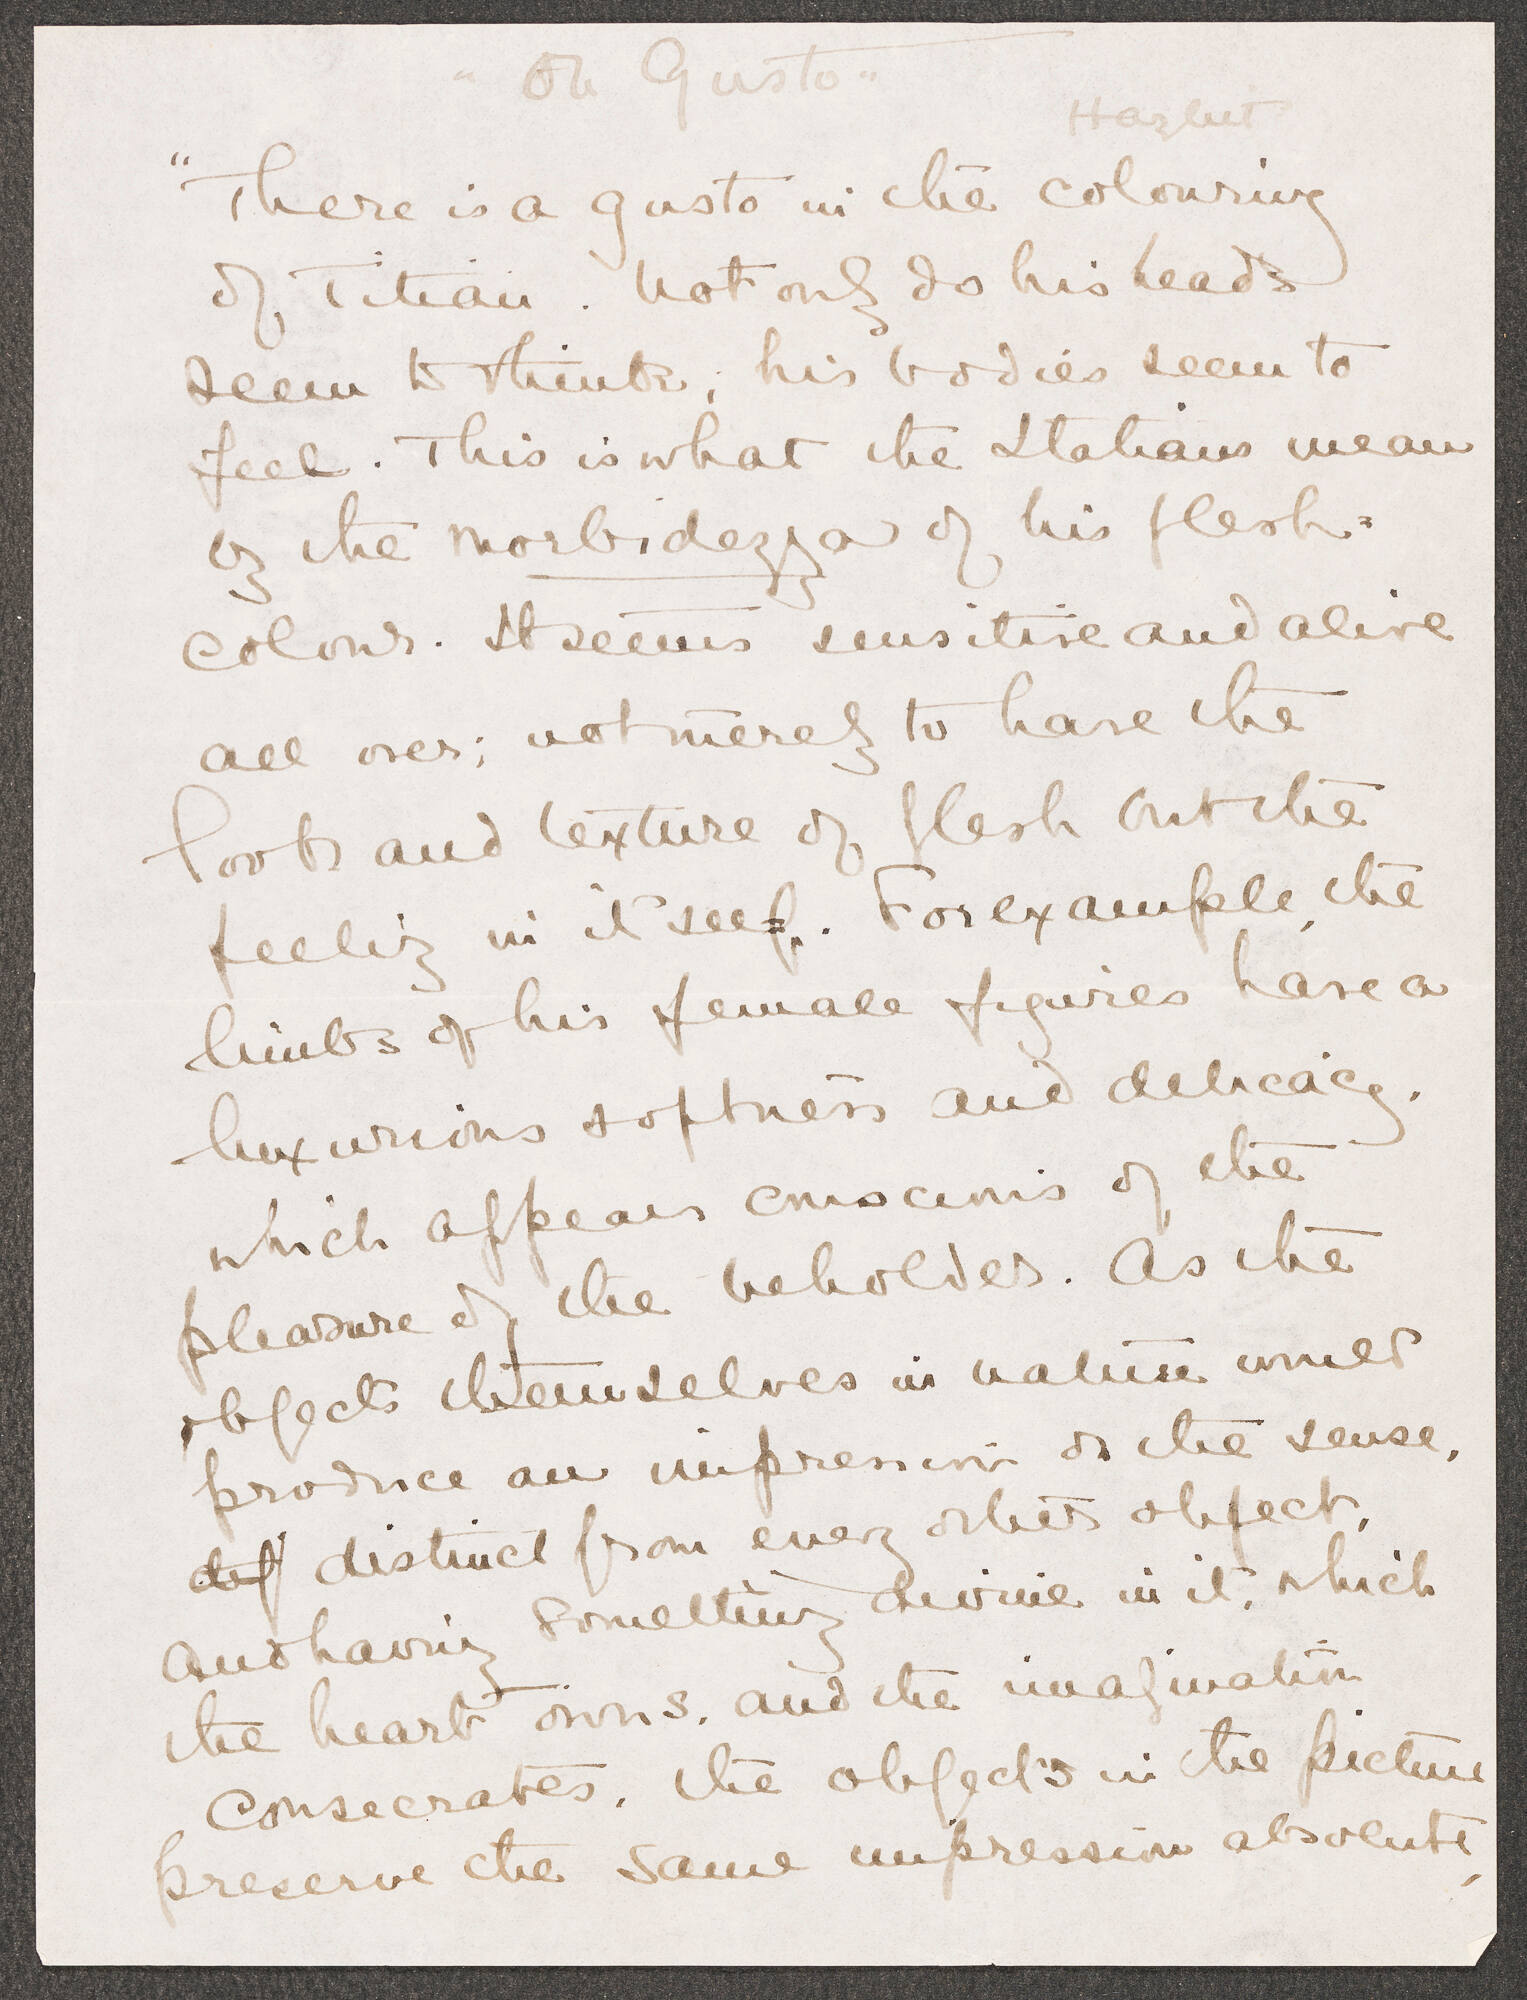 "On Gusto"
Hazlitt
"There is a gusto in the colouring
of Titian. Not only do his heads
seem to think, his bodies seem to
feel. This is what the Italians mean
by the morbidezza of his flesh-
colour. It seems sensitive and alive
all over; not merely to have the
look and texture of flesh but the
feeling in itself. For example, the
limbs of his female figures have a
luxurious softness and delicacy,
which appears conscious of the
pleasure of the beholder. As the
objects themselves in nature would
produce an impression on the sense,
distinct from every other object,
and having something divine in it, which
the heart owns, and the imagination
consecrates, the objects in the picture
preserve the same impression absolute,